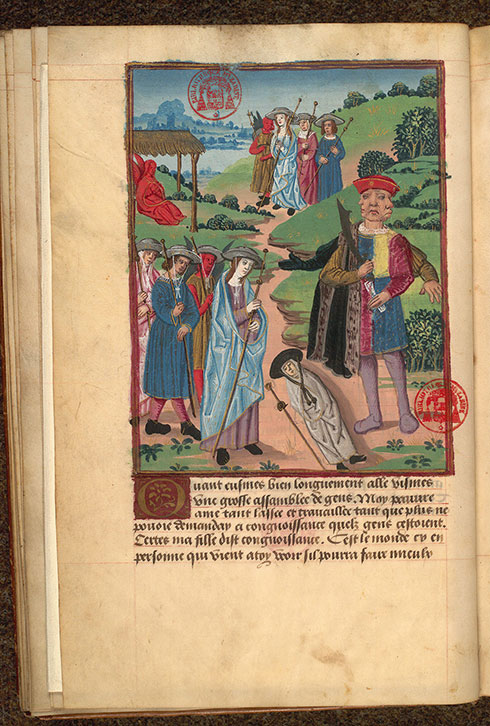 Quant eusmes bien longuement alle vismes
vne grosse assamblee de gens. Moy pouure
ame tant lassee et travaillee tant que plus ne
pouoie demanday a congnoissance quelz gens cestoient.
Certes ma fille dist congnoissance. Cest le monde cy en
personne qui vient a toy veoir sil pourra faux mieulx